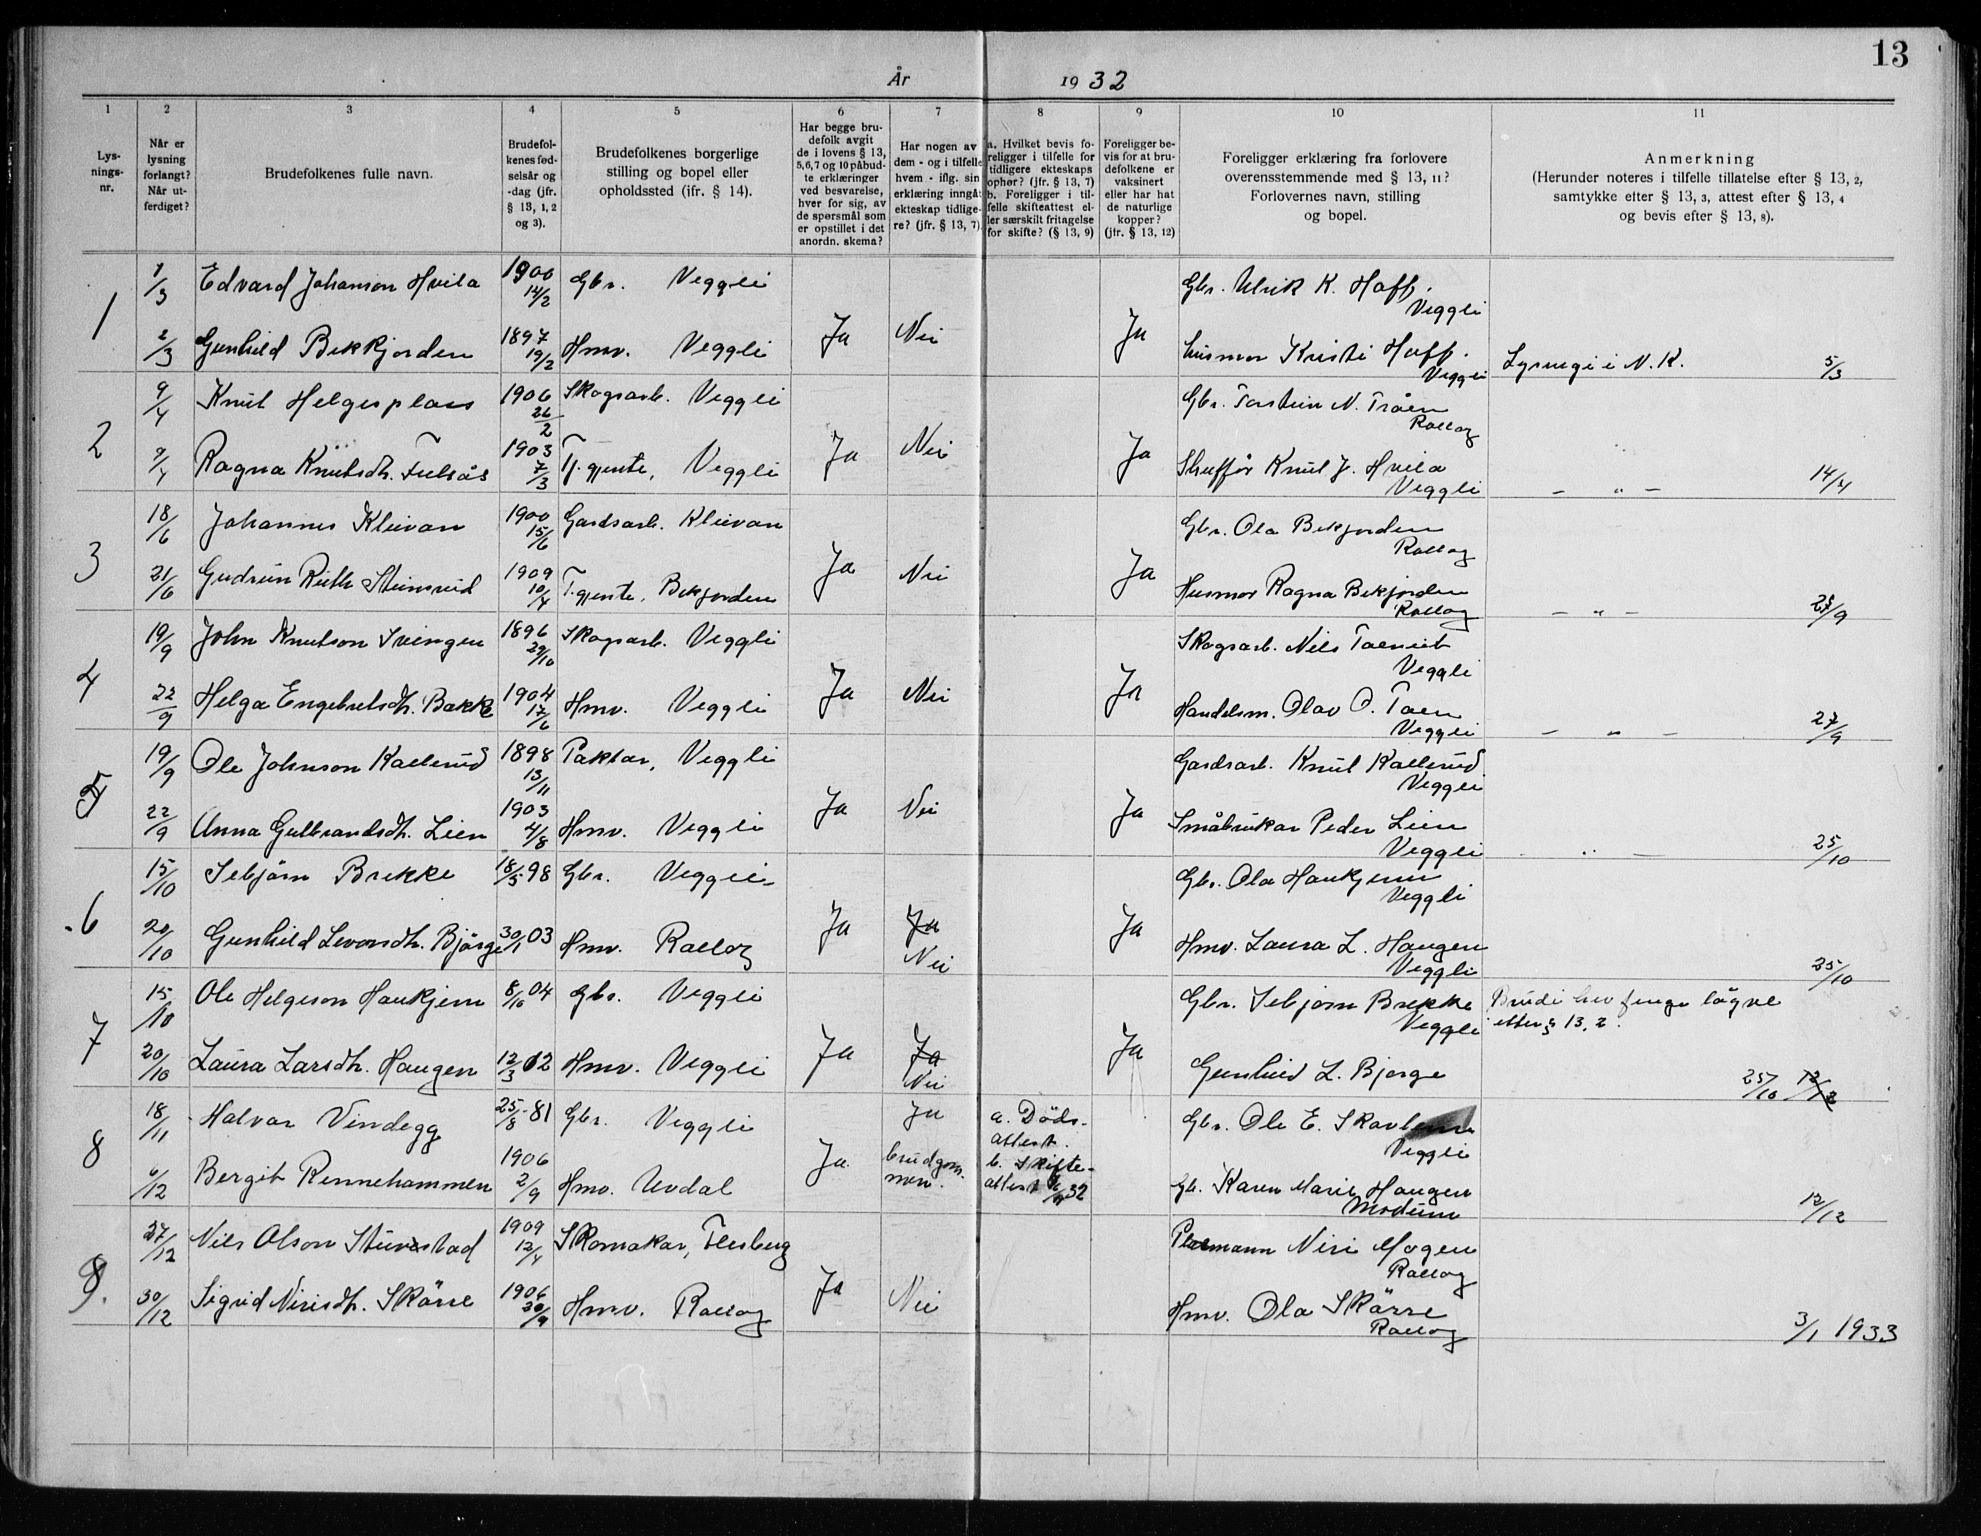 13
År 1932
1 2 3 4 5 6 7 8 9 10 11
Lys-
nings-
nr.
Når er
lysning
forlangt?
Når ut-
ferdiget?
Brudefolkenes fulle navn.
Brudefol-
kenes fød-
selsår og
-dag (jfr.
§ 13, 1, 2
og 3).
Brudefolkenes borgerlige
stilling og bopel eller
opholdssted (ifr. § 14).
Har begge bru-
defolk avgit
de i lovens § 13,
5,6,7 og 10 påbud-
te erklæringer
ved besvarelse,
hver for sig, av
de spørsmål som
er opstillet i det
anordn. skema?
Har nogen av
dem - og i tilfelle
hvem - iflg. sin
erklæring inngåt
ekteskap tidlige-
re? (jfr. § 13, 7)
a. Hvilket bevis fo-
religger i tilfelle for
tidligere ekteskaps
ophør? (jfr. § 13, 7)
b. Foreligger i til-
felle skifteattest el-
ler særskilt fritagelse
for skifte? (§ 13, 9)
Foreligger be-
vis for at bru-
defolkene er
vaksinert
eller har hat
de naturlige
kopper?
(jfr. § 13, 12)
Foreligger erklæring fra forlovere
overensstemmende med § 13, 11?
Forlovernes navn, stilling
og bopel.
Anmerkning
(Herunder noteres i tilfelle tillatelse efter § 13, 2,
samtykke efter § 13, 3, attest efter § 13, 4
og bevis efter § 13, 8).
1 1/3 Edvard Johanson Hvila 1900 14/2 Gbr. Veggli Gbr. Ulrik K. Hoff.
Veggli
2/3 Gunhild Bekkjorden 1897 19/2 Hmv. Veggli Ja Nei Ja Husmor Kristi Hoff.
Veggli Lysnegi i N. K. 5/3
2 9/4 Knut Helgesplass 1906 26/2 Skogsarb. Veggli Gbr. Torstein N. Tråen
Rollag
9/4 Ragna Knutsdh. Fulsås 1903 7/3 Tj.gjente, Veggli Ja Nei Ja Shuffør Knut J. Hvila
Veggli – " – 14/4
3 18/6 Johannes Kleivan 1900 15/6 Gardsarb. Kleivan Gbr. Ola Bekjorden
Rollag
21/6 Gudrun Ruth Steinsrud 1909 10/4 T.gjente, Bekjorden Ja Nei Ja Husmor Ragna Bekjorden
Rollag – " – /9
4 19/9 John Knutson Svingen 1896 29/10 Skogsarb. Veggli Skogsarb. Nils
Veggli
22/9 Helga Engebretsdh. Bakke 1904 17/6 Hmv. Veggli Ja Nei Ja Handelsm. Olav O. Toen
Veggli – " – 27/9
5 19/9 Ole Johnson Kallerud 1898 13/11 Paktar, Veggli Gardsarb. Knut Kallerud
Veggli
22/9 Anna Gulbrandsdh. Lien 1903 4/8 Hmv. Veggli Ja Nei Ja Småbrukar Peder Lien
Veggli " – 25/10
6 15/10 Sebjørn Brekke 18/5 98 Gbr. Veggli Gbr. Ola Haukjem
Veggli
20/10 Gunhild Levorsdh. Bjørge 30/1 03 Hmv. Rollag Ja Ja Ja Hmv. Laura L. Haugen
Nei Veggli 25/10
7 15/10 Ole Helgeson Haukjem 8/10 04 Gbr. Veggli Gbr. Sebjørn Brekke
Veggli Brudi hev fenge løgve
etter § 13, 2.
20/10 Laura Larsdh. Haugen 12/3 12 Hmv. Veggli Ja Ja Ja Gunhild L. Bjørge
Nei 25/10 12/12
8 18/11 Halvar Vindegg 25/8-81 Gbr. Veggli Ja a. Døds-
attest. Gbr. Ole E.
Veggli
6/12 Bergit Rennehammen 1906 2/9 Hmv. Uvdal Ja brudgom-
men. b. Skifte-
attest 32 Gb. Karen Marie Haugen
Modum 12/12
9. 27/12 Nils Olson Stuvstad 1909 12/4 Skomakar, Flesberg Niri Mogen
Rollag
30/12 Sigrid Nirisdh. Skårre 1906 30/9 Hmv. Rollag Ja Nei Hmv. Ola Skårre
Rollag 3/1 1933